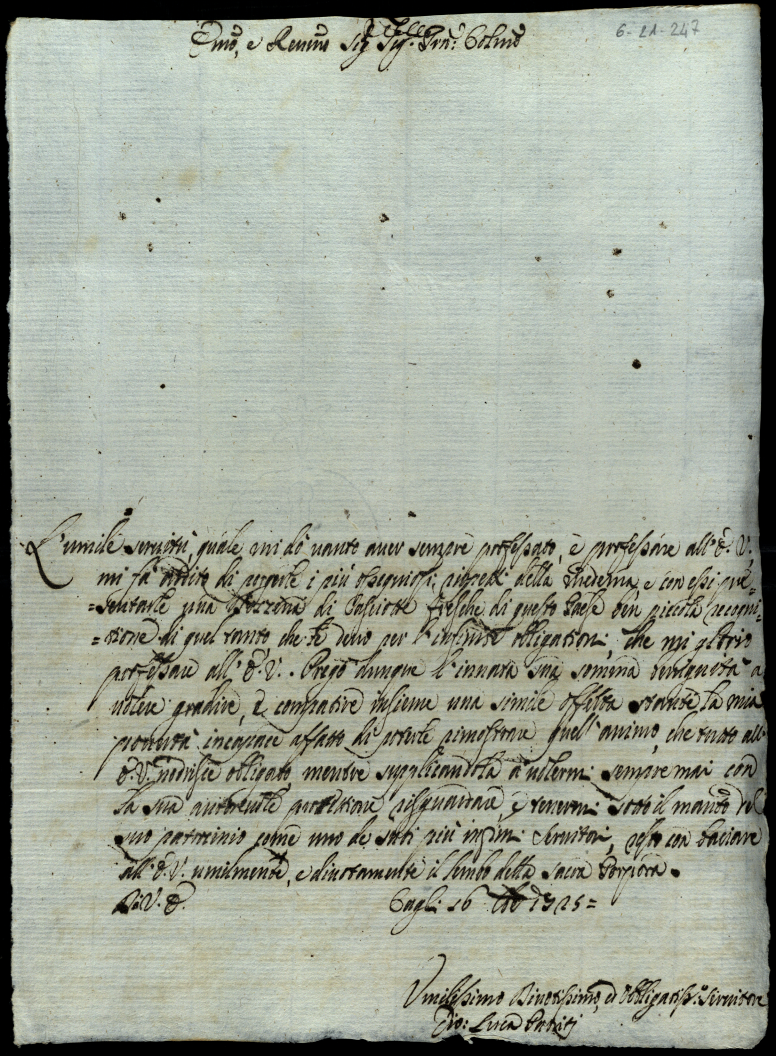 6-21-247
Emo, e Revmo Sig Sig. Prn: Colmo
L'umile servitù, quale mi dò vanto aver sempre professato, è professare all'E. V.
mi fà ardito di porgerle i più ossequiosi rispetti della Medema, e con essi pre=
=sentarle una di Casciotte fresche di questo Paese ben piccola recogni=
=tione di quel tanto, che le devo per l'infinite obligationi, che mi glorio
professare all'E. V. . Prego dunque l'innata sua somma benignità a
volere gradire, è compatire insieme una simile offerta stante la mia
povertà incapace affatto di poterle rimostrare quell'animo, che tutto all'
E. V. obligato mentre supplicandola à volermi sempre mai con
la sua autorevole protettione risguardare, è tenermi sotto il manto del
suo patrocinio come uno de suoi più infimi Servitori, resto con baciare
all'E. V. umilmente, e divotamente il lembo della sacra Porpora.
Di V. E. Cagli 16 1725=
Umilissimo Divotissimo, ed Obbligatiss.o Servitore
Gio: Luca